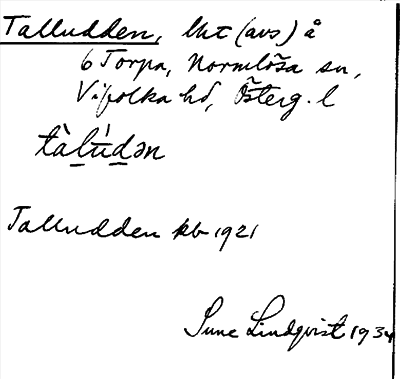 Talludden, lht (avs) å
6 Torpa, Normlösa sn,
Vifolka hd, Österg. l
tàlúdən
Talludden kb 1921
Sune Lindqvist 1934